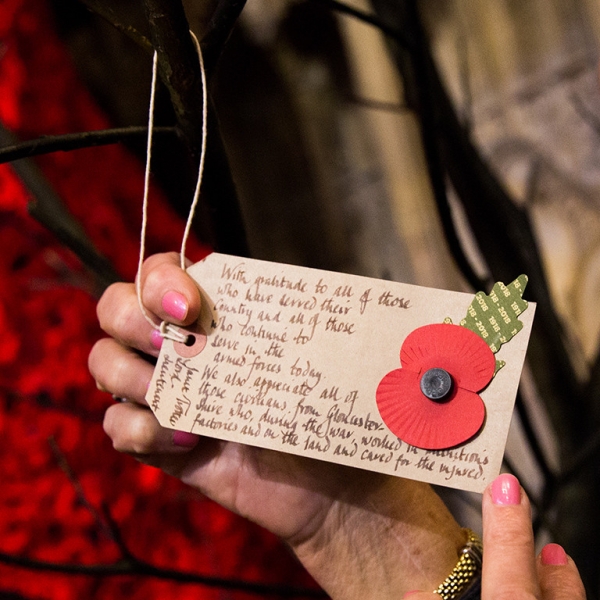 With gratitude to all of those
who have served their
Country and all of those
who continue to
serve in the
armed forces today.
We also appreciate all of
those civilians, from Gloucester-
shire who, during the war, worked in munitions
factories and on the land and cared for the injured.
Jane
Love
1918 - 2018